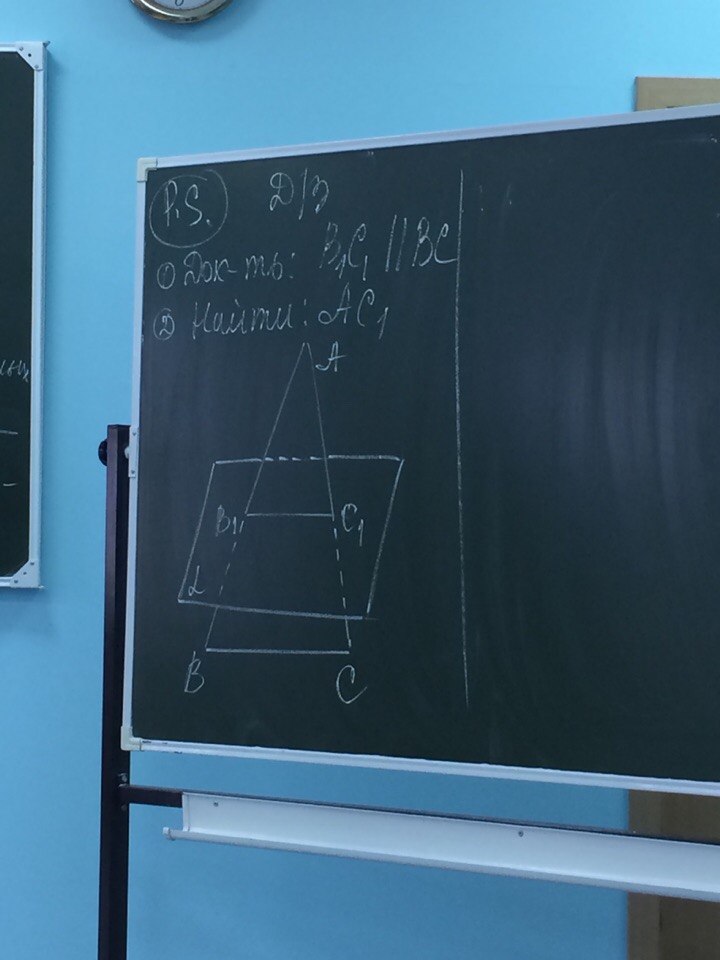 P.S. Д/з
① Док-ть: B₁C₁ || BC
② Найти: AC₁
A
B₁ C₁
α
B C